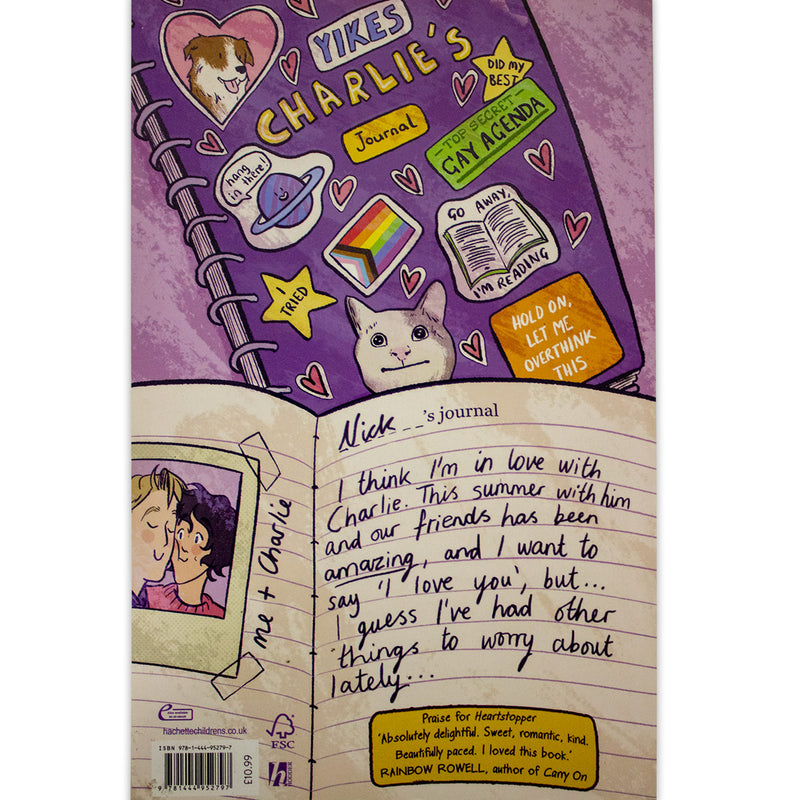 YIKES
CHARLIE'S
Journal
DID MY
BEST
-TOP SECRET-
GAY AGENDA
hang
in there!
GO AWAY,
I'M READING
I
TRIED
HOLD ON,
LET ME
OVERTHINK
THIS
Nick _ _'s journal
I think I'm in love with
Charlie. This summer with him
and our friends has been
amazing, and I want to
say 'I love you', but...
I guess I've had other
things to worry about
lately...
me + Charlie
Praise for Heartstopper
'Absolutely delightful. Sweet, romantic, kind.
Beautifully paced. I loved this book.'
RAINBOW ROWELL, author of Carry On
hachettechildrens.co.uk
FSC
ISBN 978-1-444-95279-7
9 781444 952797
66 013
h
HODDER